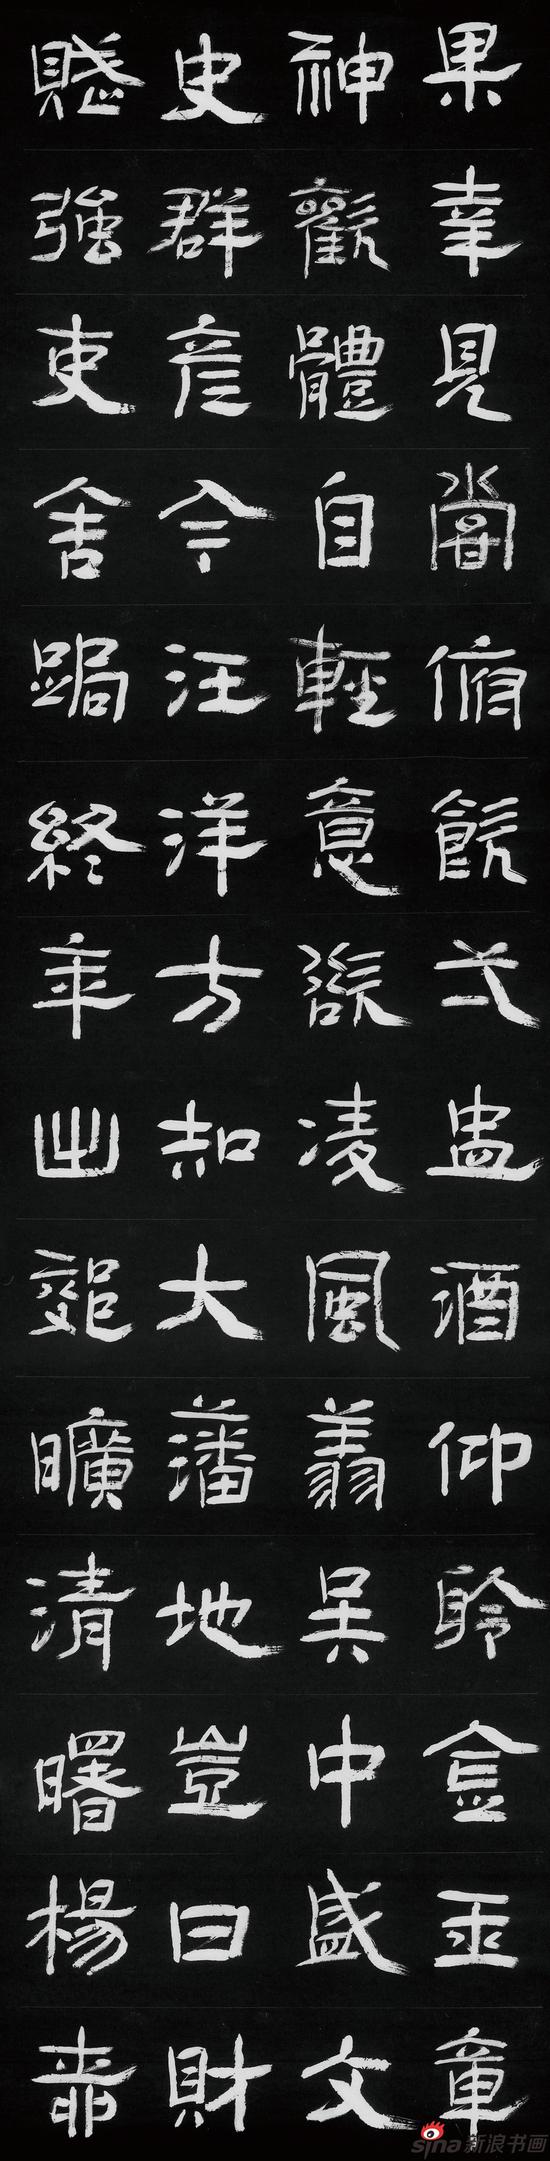 果幸見嘗俯飲弌盃酒仰聆金玉章
神歡體自輕意欲凌風翔吳中盛文
史群彥今汪洋方知大藩地豈曰財
賦強吏舍跼終年出郊曠清曙楊桺
sina新浪书画